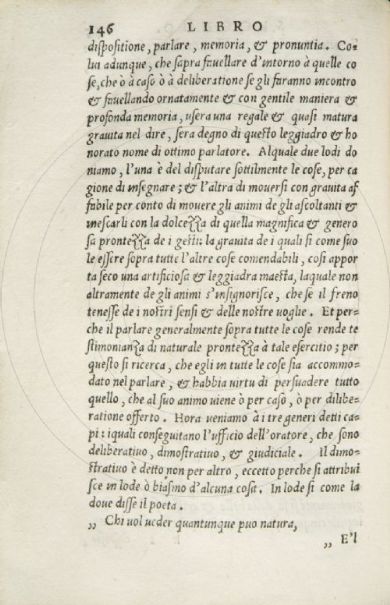 146 LIBRO
dispositione, parlare, memoria, & pronuntia. Co-
lui adunque, che saprà fauellare d'intorno à quelle co
se, che ò à caso ò à deliberatione se gli faranno incontro
& fauellando ornatamente & con gentile maniera &
profonda memoria, userà una regale & quasi matura
grauità nel dire, serà degno di questo leggiadro & ho
norato nome di ottimo parlatore. Al quale due lodi do
niamo, l'una è del disputare sottilmente le cose, per ca
gione di insegnare; & l'altra di mouersi con grauità af
fabile per conto di mouere gli animi de gli ascoltanti &
inescarli con la dolcezza di quella magnifica & genero
sa prontezza de i gesti: la grauità de i quali si come suo
le essere sopra tutte l'altre cose comendabili, così appor
ta seco una artificiosa & leggiadra maestà, laquale non
altramente de gli animi s'insignorisce, che se il freno
tenesse de i nostri sensi & delle nostre uoglie. Et per-
che il parlare generalmente sopra tutte le cose rende te
stimonianza di naturale prontezza à tale esercitio; per
questo si ricerca, che egli in tutte le cose sia accommo-
dato nel parlare, & habbia uirtù di persuadere tutto
quello, che al suo animo uiene ò per caso, ò per delibe-
ratione offerto. Hora ueniamo à i tre generi detti ca-
pi: iquali conseguitano l'ufficio dell'oratore, che sono
deliberatiuo, dimostratiuo, & giudiciale. Il dimo-
stratiuo è detto non per altro, eccetto perche si attribui
sce in lode ò biasmo d'alcuna cosa. In lode si come la
doue disse il poeta.
„ Chi uol ueder quantunque può natura,
„ E'l